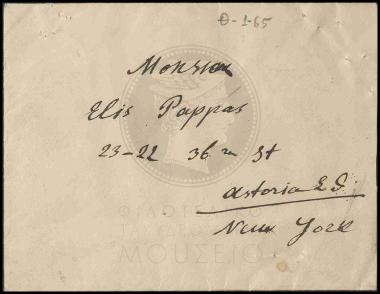 Θ-1-65
Monsieur
Elis Pappas
23-22 36 th St
Astoria L.I.
New York
ΦΙΛΟΤΕΛΙΚΟ
ΜΟΥΣΕΙΟ